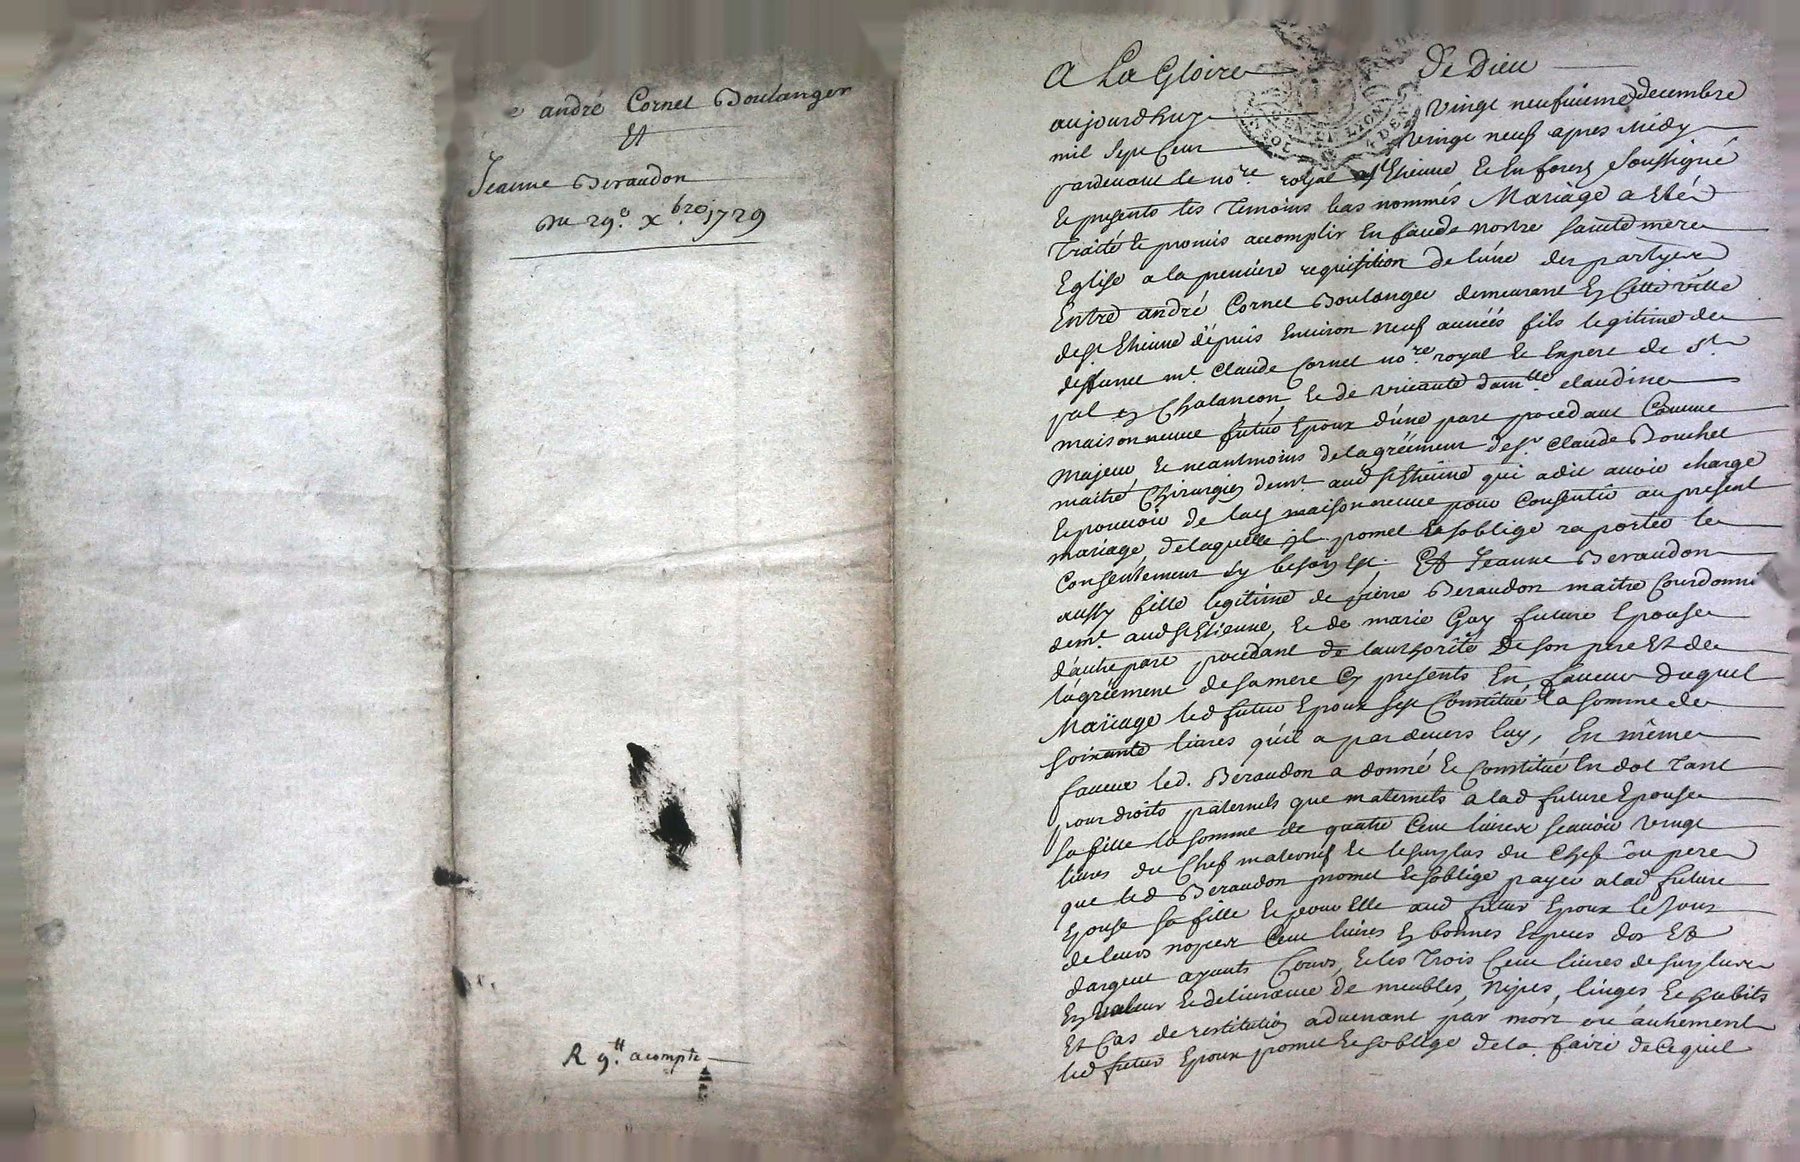 andré Cornet Boulanger
Et
Jeanne Beraudon
Du 29e. xbre. 1729
R 9.tt acompte
A La Gloire De Dieu
aujourdhuy vingt neufuieme decembre
mil sept cent vingt neuf apres midy
pardevant le nore. royal a St Etienne et en forez soussigné
et presents les temoins bas nommés Mariage a eté
traité et promis acomplir en face de nostre sainte mere
Eglise a la premiere requisition de lune des partyes
Entre andré Cornet Boulanger demeurant en cette ville
de St Etienne depuis environ neuf années fils legitime de
deffunct me. Claude Cornet nore. royal et expert de St.
pal en Chalancon, et de vivante damlle claudine
maisonneuve futur Epoux d'une part procedant Comme
majeur et neantmoins de lagréement de sr. Claude Bouchet
maitre Chirurgien demt. aud St Etienne qui a dit avoir charge
et pouvoir de lad maisonneuve pour consentir au present
mariage, de laquelle il promet et soblige raporter le
Consentement sy besoin est. Et Jeanne Beraudon
aussy fille legitime de pierre Beraudon maitre Courdonnier
demt. aud St Etienne, et de marie Guy future Epouse
dautre part procedant de lauthorité de son pere et de
lagréement de sa mere cy presents En faveur duquel
Mariage led futur Epoux sest Constitué la somme de
soixante livres quil a pardevers luy, En même
faveur led. Beraudon a donné et Constitué en dot tant
pour droits paternels que maternels a lad future Epouse
sa fille la somme de quatre cent livres scavoir vingt
livres du Chef maternel et le surplus du Chef du pere
que led Beraudon promet et soblige payer a lad future
Epouse sa fille et pour elle aud futur Epoux le jour
de leurs nopces Cent livres en bonnes Especes dor Et
dargent ayants Cours, et les trois Cent livres de surplus
en valeur et delivrance de meubles, nipes, linges et habits
Et Cas de restitution advenant par mort ou autrement
led futur Epoux promet et soblige de la faire de ce quil